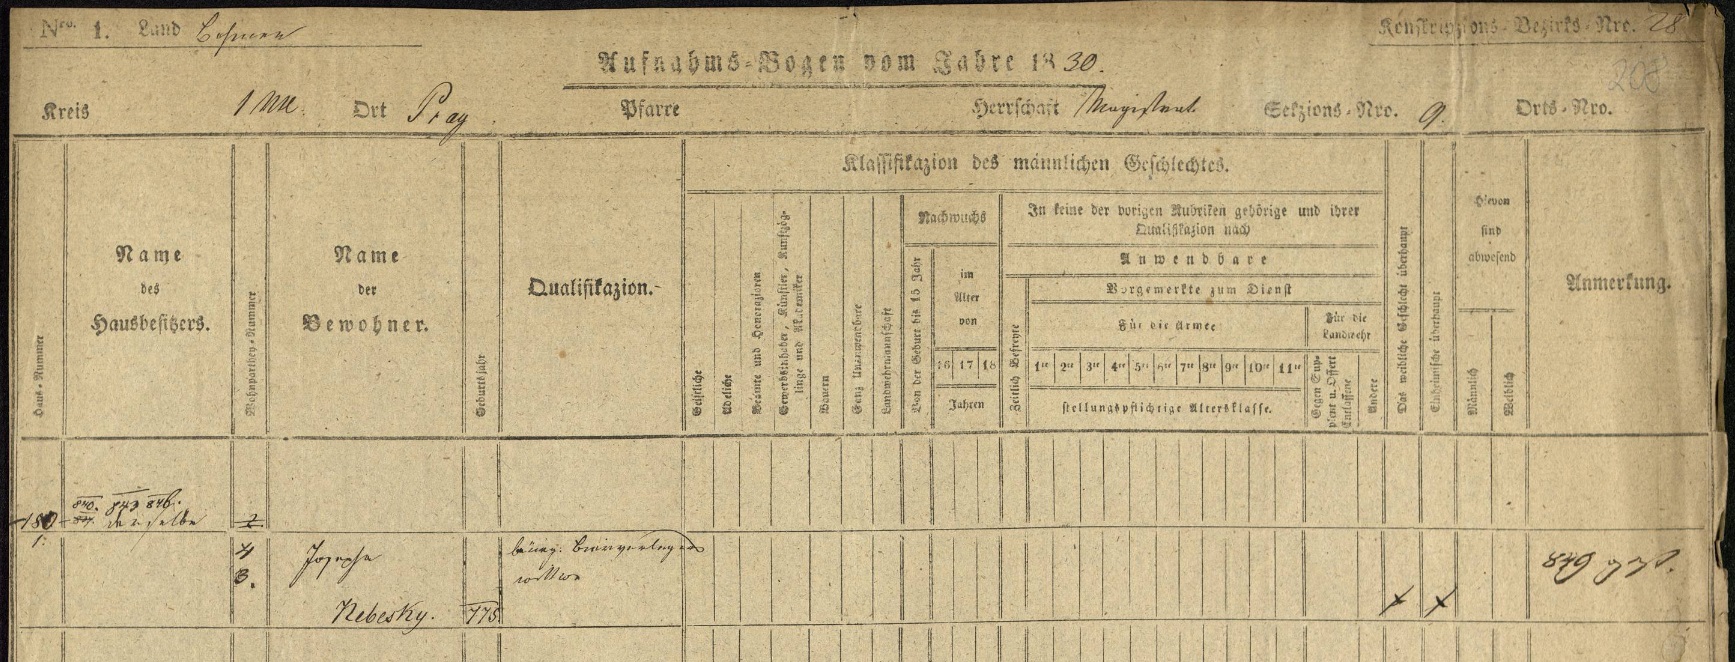 Nro. 1. Land Böhmen
Konskripzions-Bezirks-Nro. 28
Aufnahms-Bogen vom Jahre 1830.
208
Kreis Ort Prag Pfarre Herrschaft Magistrat Sekzions-Nro. 9. Orts-Nro.
Haus-Nummer
Name
des
Hausbesitzers.
Wohnparthey-Nummer
Name
der
Bewohner.
Geburtsjahr
Qualifikazion.
Klassifikazion des männlichen Geschlechtes.
Geistliche
Adeliche
Beamte und Honorazioren
Gewerbsinhaber, Künstler, Kunstzög-
linge und Akademiker
Bauern
Ganz Unanwendbare
Landwehrmannschaft
Nachwuchs
Von der Geburt bis 15 Jahr
im
Alter
von
16 17 18
Jahren
In keine der vorigen Rubriken gehörige und ihrer
Qualifikazion nach
Zeitlich Befreyte
Anwendbare
Vorgemerkte zum Dienst
Für die Armee
1te 2te 3te 4te 5te 6te 7te 8te 9te 10te 11te
stellungspflichtige Altersklasse.
Für die
Landwehr
Gegen Sup-
plent u. Offert
Entlassene
Andere
Das weibliche Geschlecht überhaupt
Einheimische überhaupt
Hievon
sind
abwesend
Männlich
Weiblich
Anmerkung.
840. 843 846.
derselbe 2
4 Josepha bürg. Bierverlegers
3. wittwe
Nebesky. 775